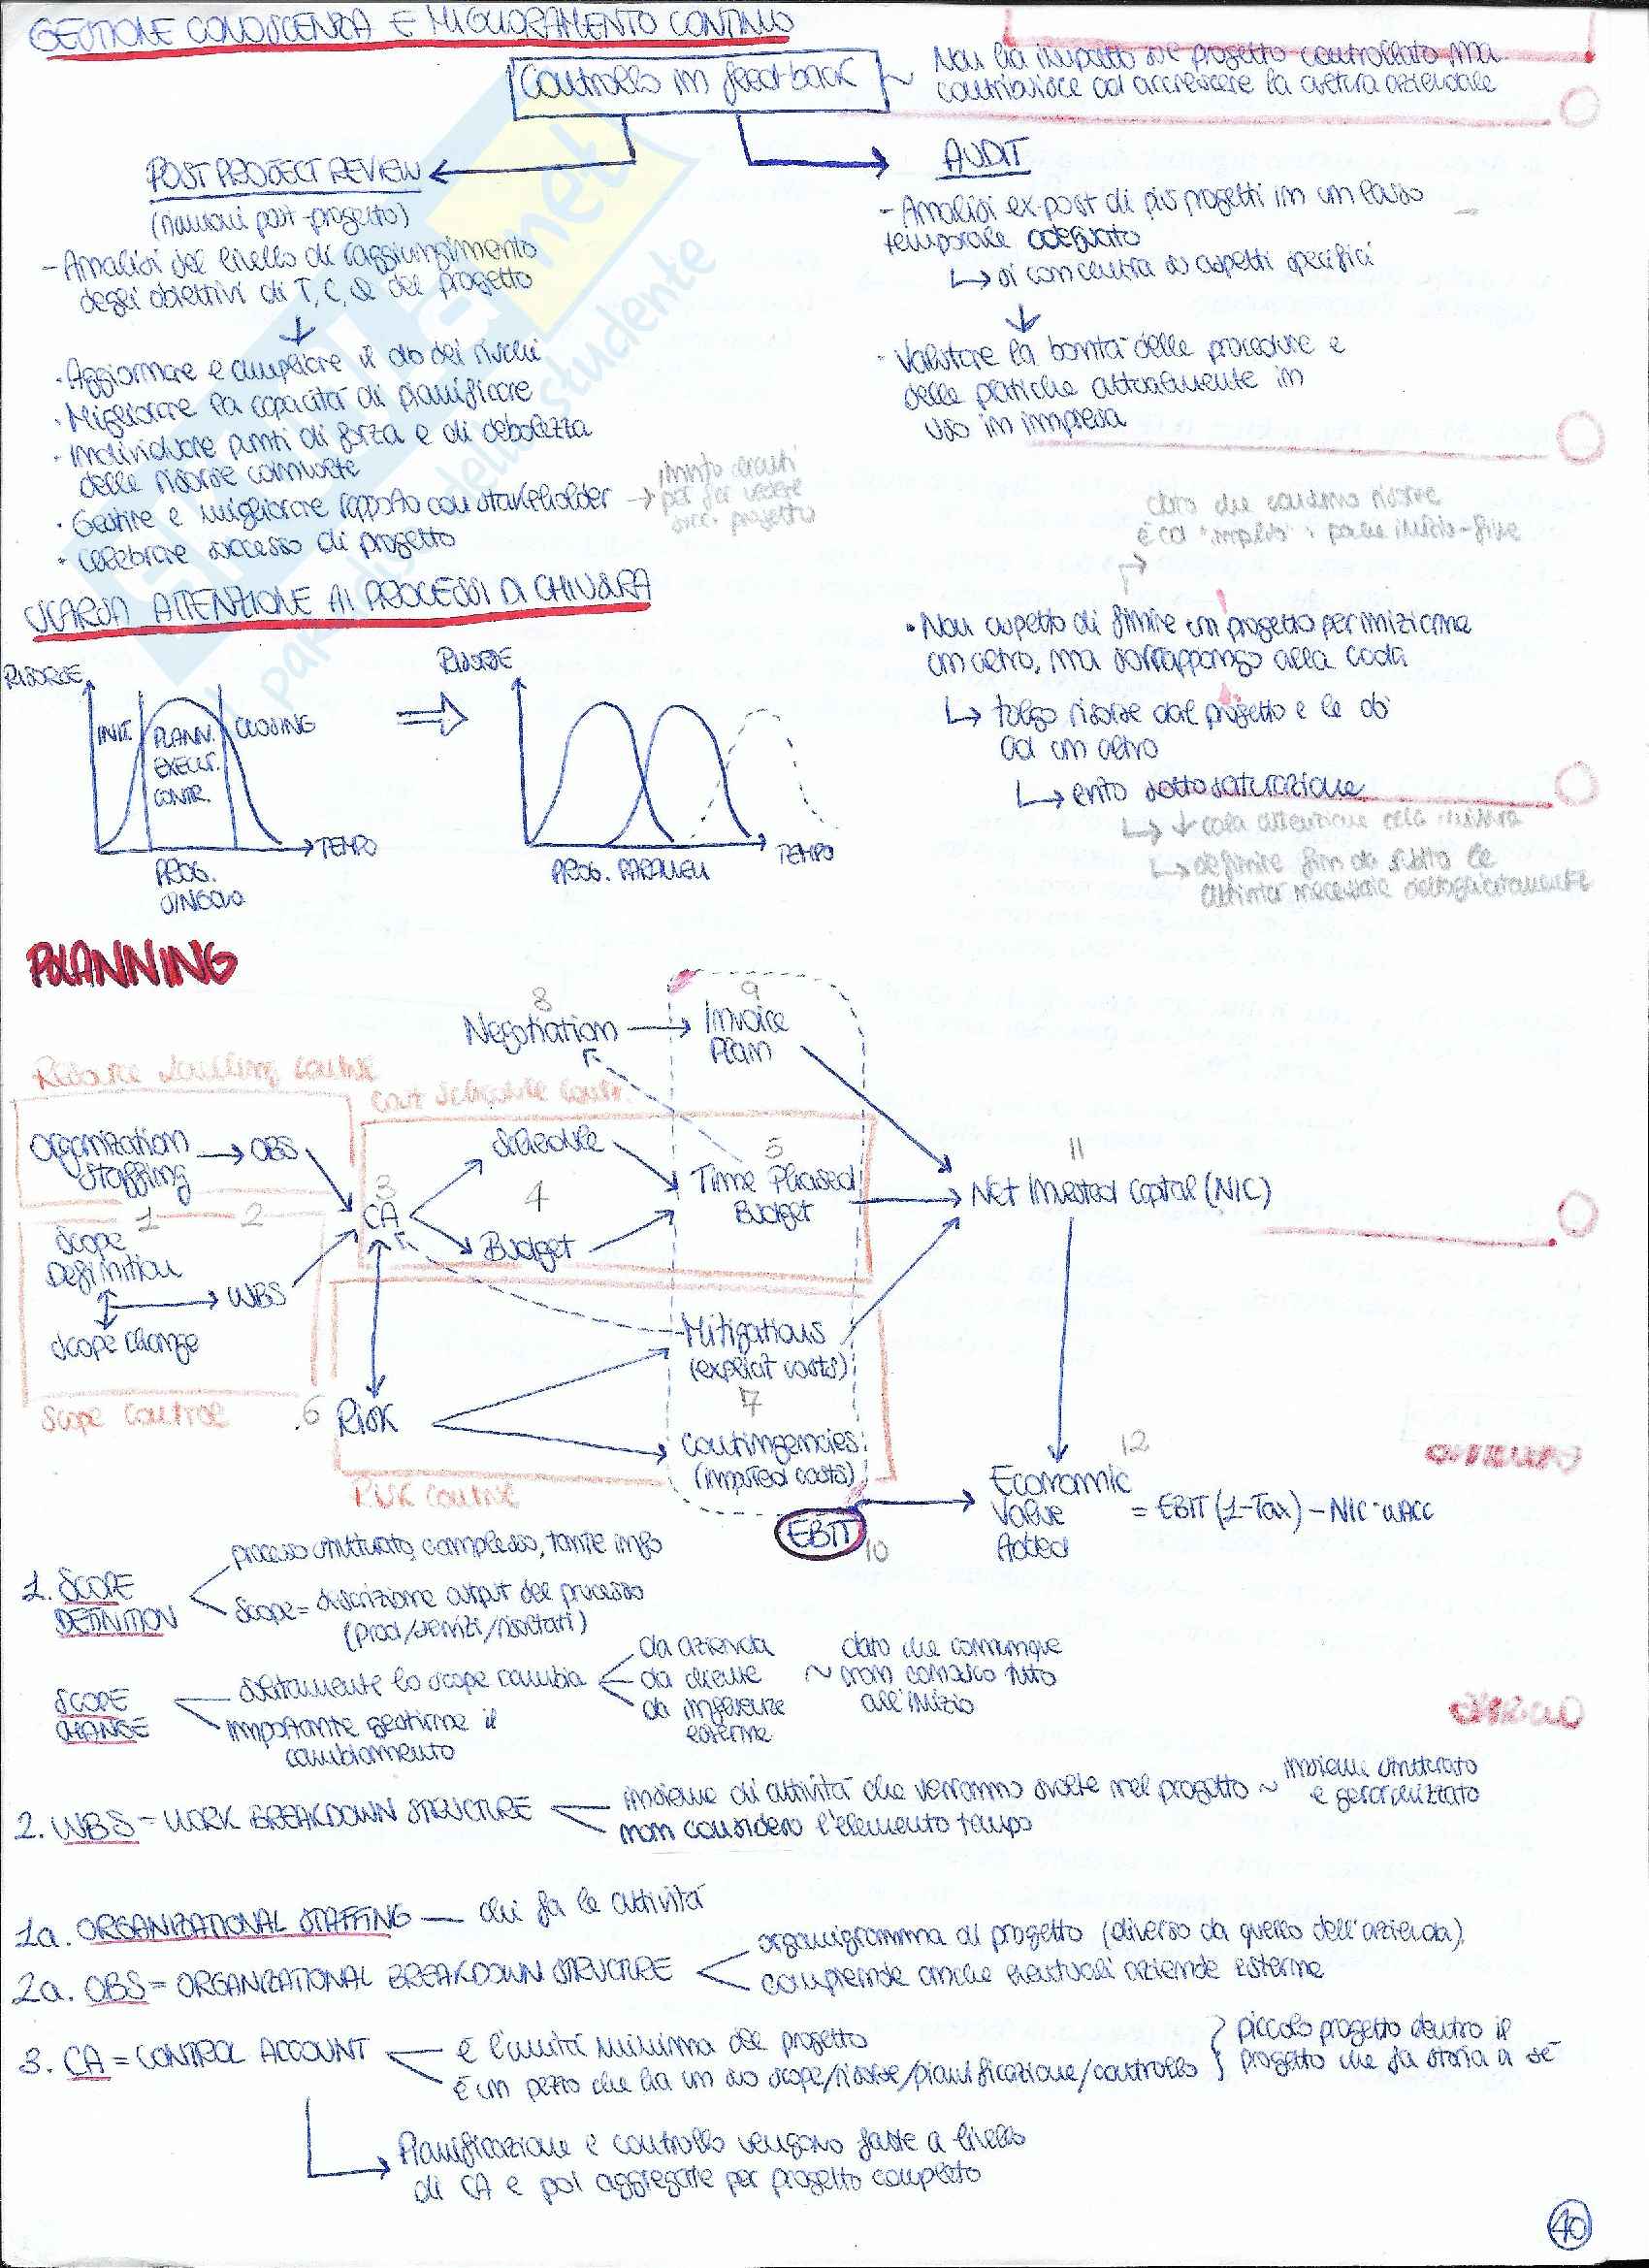 GESTIONE CONOSCENZA E MIGLIORAMENTO CONTINUO
Controllo in feed-back
Non ha impatto sul progetto controllato ma
contribuisce ad accrescere la cultura aziendale
POST PROJECT REVIEW
(riunioni post-progetto)
- Analisi del livello di raggiungimento
degli obiettivi di T, C, Q del progetto
· Aggiornare e ampliare il db dei rischi
· Migliorare la capacità di pianificare
· Individuare punti di forza e di debolezza
delle risorse coinvolte
· Gestire e migliorare rapporto con stakeholder
→ invito clienti
per far vedere
progetto
· Celebrare successo di progetto
AUDIT
- Analisi ex-post di più progetti in un lasso
temporale adeguato
↳ si concentra su aspetti specifici
- Valutare la bontà delle procedure e
delle pratiche attualmente in
uso in impresa
SCARSA ATTENZIONE AI PROCESSI DI CHIUSURA
RISORSE
INIT.
PLANN.
EXECUT.
CONTR.
CLOSING
TEMPO
PROG.
SINGOLO
RISORSE
TEMPO
PROG. PARALLELI
dato che risorse
inizio-fine
• Non aspetto di finire un progetto per iniziarne
un altro, ma sovrappongo alla coda
↳ tolgo risorse dal progetto e le do
ad un altro
↳ evito sottosaturazione
↳ ↓ cala attenzione alla chiusura
↳ definire fin da subito le
attività necessarie dettagliatamente
PLANNING
8
Negotiation
9
Invoice
Plan
Resource Staffing Control
Cost Schedule Contr.
Organization
Staffing
OBS
1
2
Scope
Definition
WBS
Scope change
Scope Control
3
CA
Schedule
4
Budget
5
Time Phased
Budget
11
Net Invested Capital (NIC)
Mitigations
(explicit costs)
7
6
Risk
Contingencies
(implied costs)
Risk Control
EBIT
10
12
Economic
Value
Added
= EBIT (1-Tax) - NIC·WACC
1. SCOPE
DEFINITION
processo strutturato, complesso, tante info
Scope = descrizione output del processo
(prod/servizi/risultati)
SCOPE
CHANGE
solitamente lo scope cambia
da azienda
da cliente
da influenze
esterne
~ dato che comunque
non conosco tutto
all'inizio
importante gestirne il
cambiamento
2. WBS = WORK BREAKDOWN STRUCTURE
insieme di attività che verranno svolte nel progetto ~ insieme strutturato
e gerarchizzato
non considero l'elemento tempo
1a. ORGANIZATIONAL STAFFING — chi fa le attività
2a. OBS = ORGANIZATIONAL BREAKDOWN STRUCTURE
organigramma di progetto (diverso da quello dell'azienda),
comprende anche eventuali aziende esterne
3. CA = CONTROL ACCOUNT
è l'unità minima del progetto
è un pezzo che ha un suo scope/risorse/pianificazione/controllo
} piccolo progetto dentro il
progetto che fa storia a sé
Pianificazione e controllo vengono fatte a livello
di CA e poi aggregate per progetto completo
40